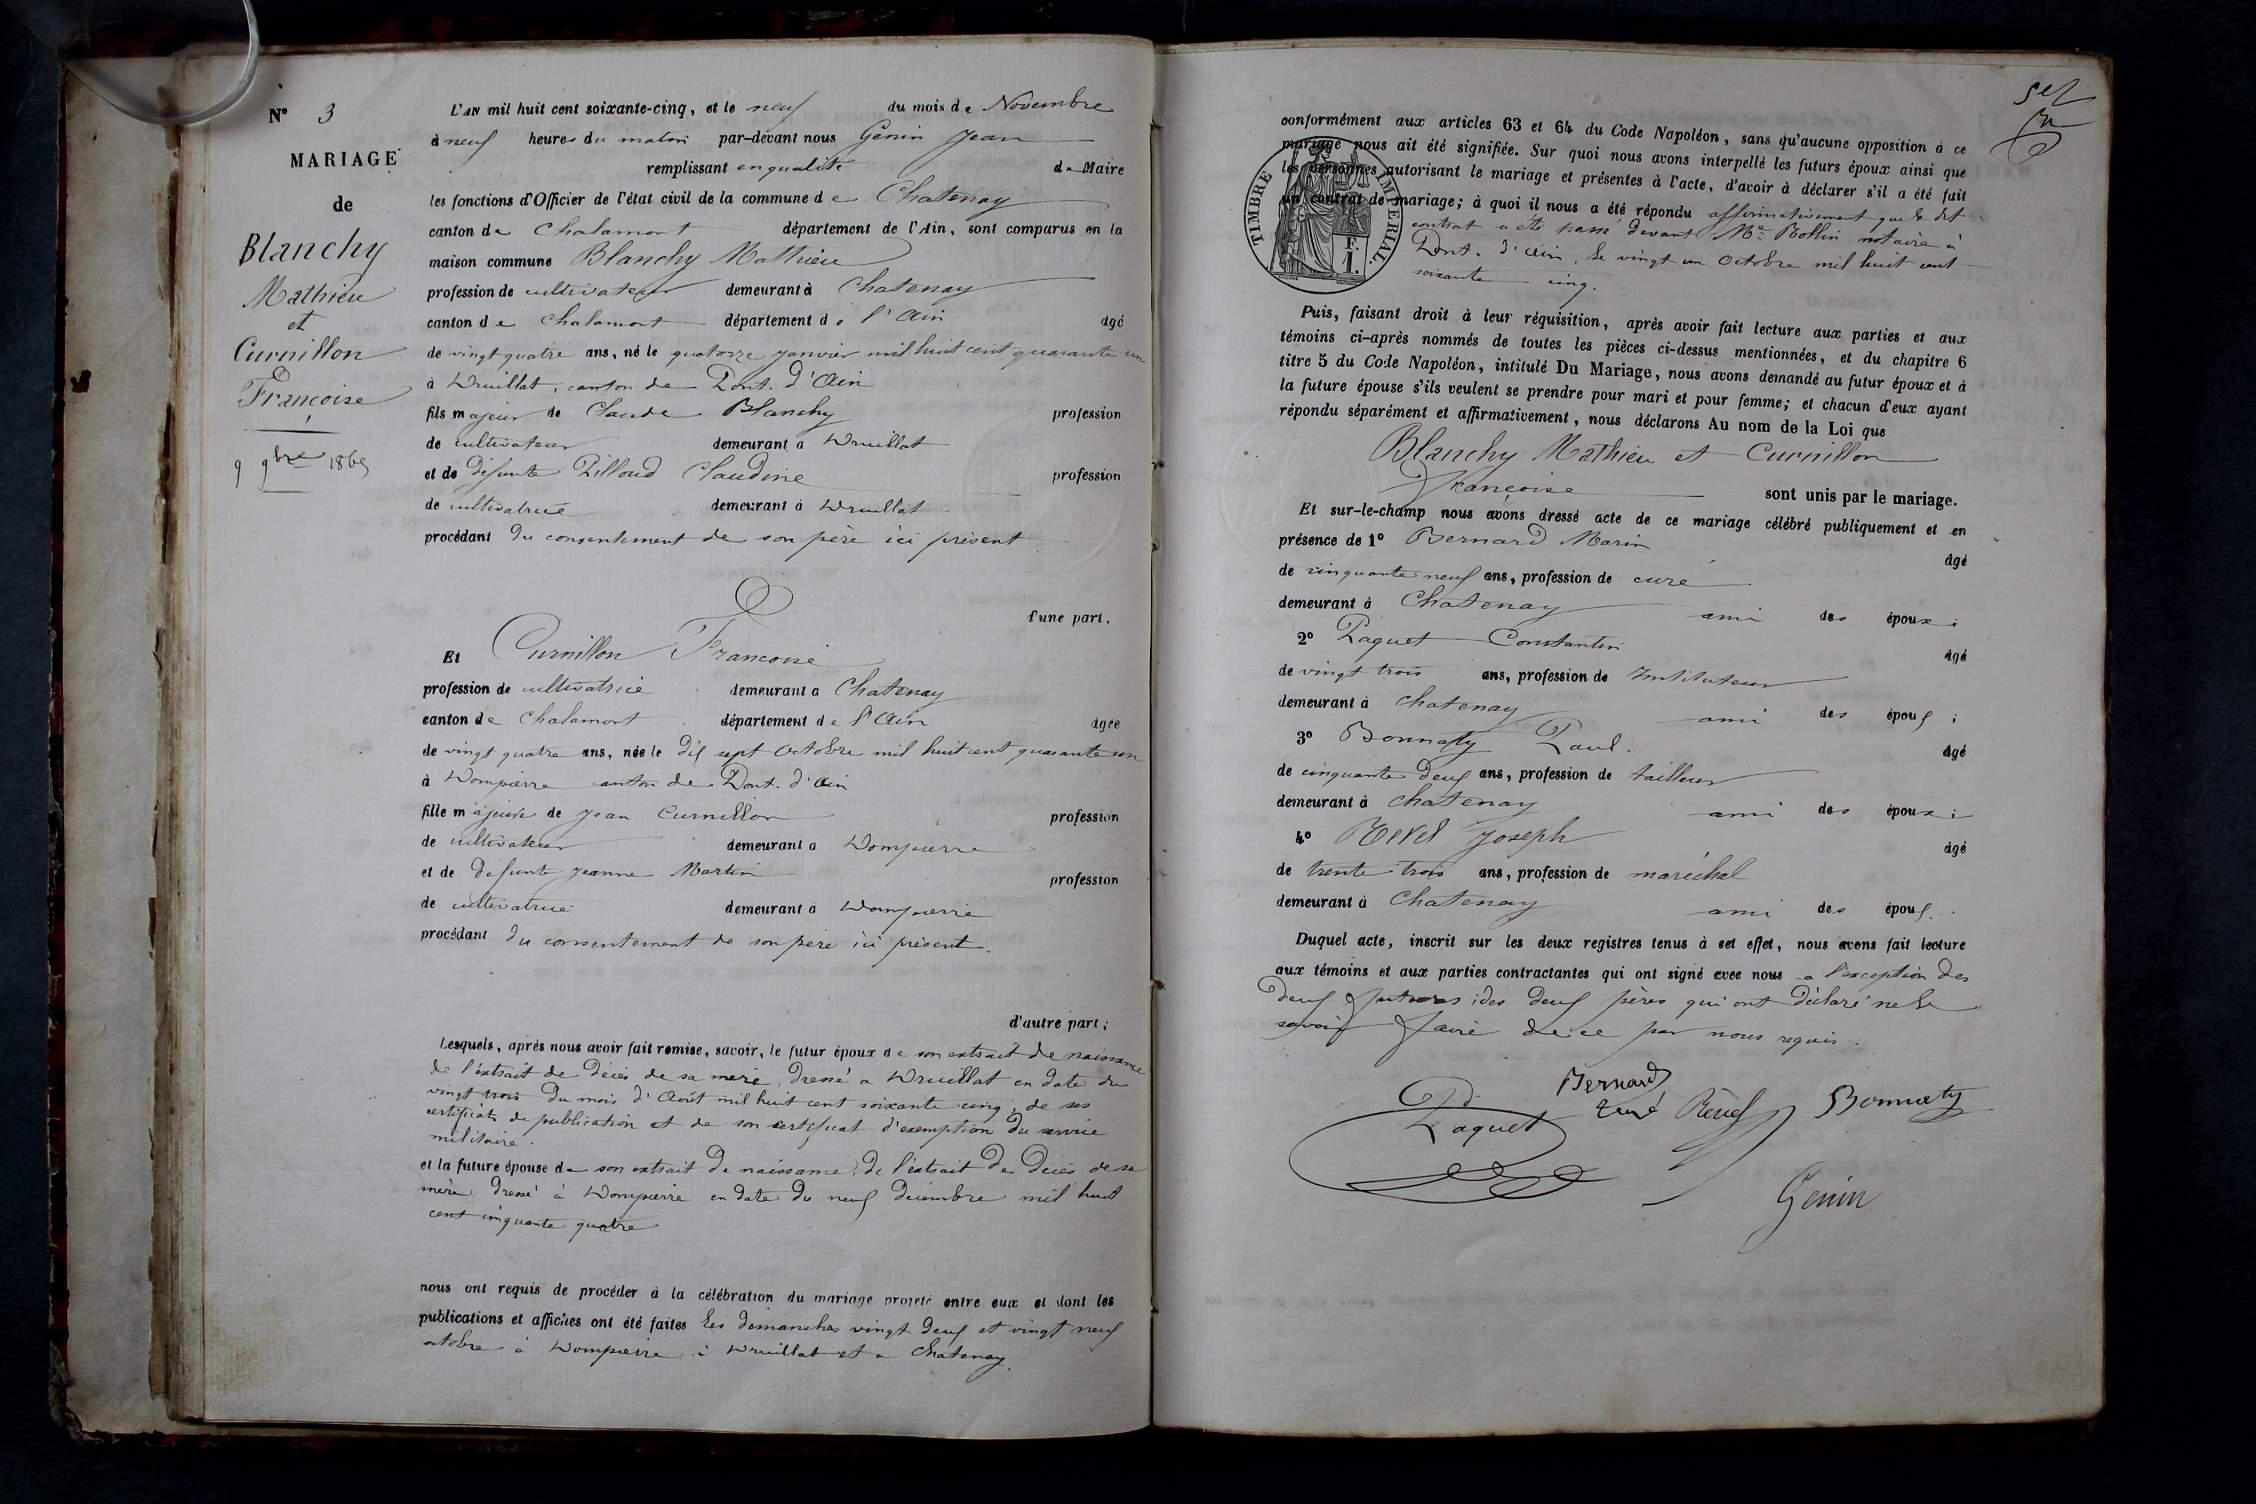 N° 3
MARIAGE
de
Blanchy
Mathieu
et
Curnillon
Françoise
9 9bre 1865
L'AN mil huit cent soixante-cinq, et le neuf du mois de Novembre
à neuf heures du matin par-devant nous Genin Jean
remplissant en qualité de Maire
les fonctions d'Officier de l'état civil de la commune de Chatenay
canton de Chalamont département de l'Ain, sont comparus en la
maison commune Blanchy Mathieu
profession de cultivateur demeurant à Chatenay
canton de Chalamont département de l'Ain âgé
de vingt quatre ans, né le quatorze janvier mil huit cent quarante un
à Druillat, canton de Pont. d'Ain
fils majeur de Claude Blanchy profession
de cultivateur demeurant à Druillat
et de défunte Pilloud Claudine profession
de cultivatrice demeurant à Druillat
procédant du consentement de son père ici présent
d'une part.
Et Curnillon Françoise
profession de cultivatrice demeurant à Chatenay
canton de Chalamont département de l'Ain âgée
de vingt quatre ans, née le dix sept Octobre mil huit cent quarante un
à Dompierre canton de Pont. d'Ain
fille majeure de Jean Curnillon profession
de cultivateur demeurant à Dompierre
et de défunte Jeanne Martin profession
de cultivatrice demeurant à Dompierre
procédant du consentement de son père ici présent.
d'autre part;
Lesquels, après nous avoir fait remise, savoir, le futur époux de son extrait de naissance
de l'extrait de décès de sa mère, dressé a Druillat en date du
vingt trois du mois d'Août mil huit cent soixante cinq, de ses
certificats de publication et de son certificat d'exemption du service
militaire.
et la future épouse de son extrait de naissance, de l'extrait de décès de sa
mère dressé à Dompierre en date du neuf décembre mil huit
cent cinquante quatre
nous ont requis de procéder à la célébration du mariage projeté entre eux et dont les
publications et affiches ont été faites les dimanches vingt deux et vingt neuf
octobre à Dompierre à Druillat et a Chatenay.
conformément aux articles 63 et 64 du Code Napoléon, sans qu'aucune opposition à ce
mariage nous ait été signifiée. Sur quoi nous avons interpellé les futurs époux ainsi que
les personnes autorisant le mariage et présentes à l'acte, d'avoir à déclarer s'il a été fait
un contrat de mariage; à quoi il nous a été répondu affirmativement que le dit
contrat a été passé devant Me Rollin notaire à
Pont. d'Ain, le vingt un Octobre mil huit cent
soixante cinq.
TIMBRE IMPERIAL.
F.
I.
Puis, faisant droit à leur réquisition, après avoir fait lecture aux parties et aux
témoins ci-après nommés de toutes les pièces ci-dessus mentionnées, et du chapitre 6
titre 5 du Code Napoléon, intitulé Du Mariage, nous avons demandé au futur époux et à
la future épouse s'ils veulent se prendre pour mari et pour femme; et chacun d'eux ayant
répondu séparément et affirmativement, nous déclarons Au nom de la Loi que
Blanchy Mathieu et Curnillon
Françoise sont unis par le mariage.
Et sur-le-champ nous avons dressé acte de ce mariage célébré publiquement et en
présence de 1° Bernard Marin âgé
de cinquante neuf ans, profession de curé
demeurant à Chatenay ami des époux;
2° Paquet Constantin âgé
de vingt trois ans, profession de Instituteur
demeurant à Chatenay ami des époux;
3° Bonnaty Paul. âgé
de cinquante deux ans, profession de tailleur
demeurant à Chatenay ami des époux;
4° Revel Joseph âgé
de trente trois ans, profession de maréchal
demeurant à Chatenay ami des époux.
Duquel acte, inscrit sur les deux registres tenus à cet effet, nous avons fait lecture
aux témoins et aux parties contractantes qui ont signé avec nous a l'exception des
deux futurs; des deux pères qui ont déclaré ne le
savoir faire de ce par nous requis.
Bernard
curé
Paquet
Revel
Bonnaty
Genin